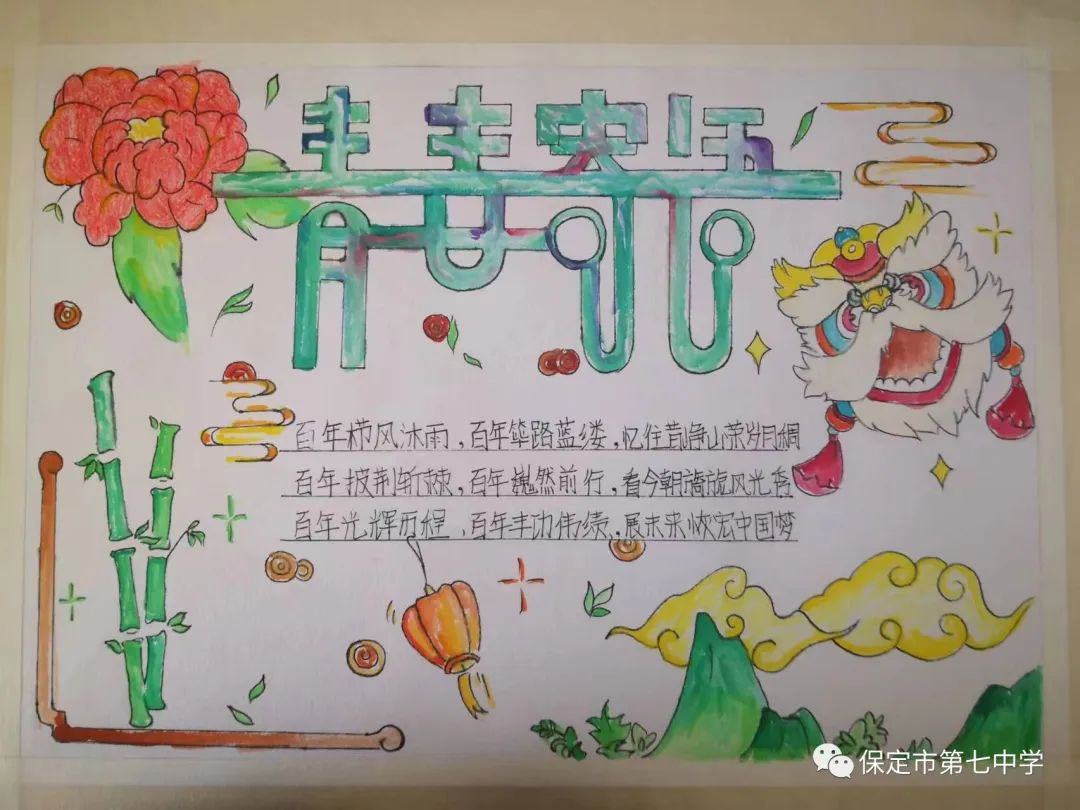 青春寄语
百年栉风沐雨，百年筚路蓝缕，忆往昔峥嵘岁月稠
百年披荆斩棘，百年巍然前行，看今朝旖旎风光秀
百年光辉历程，百年丰功伟绩，展未来恢宏中国梦
保定市第七中学